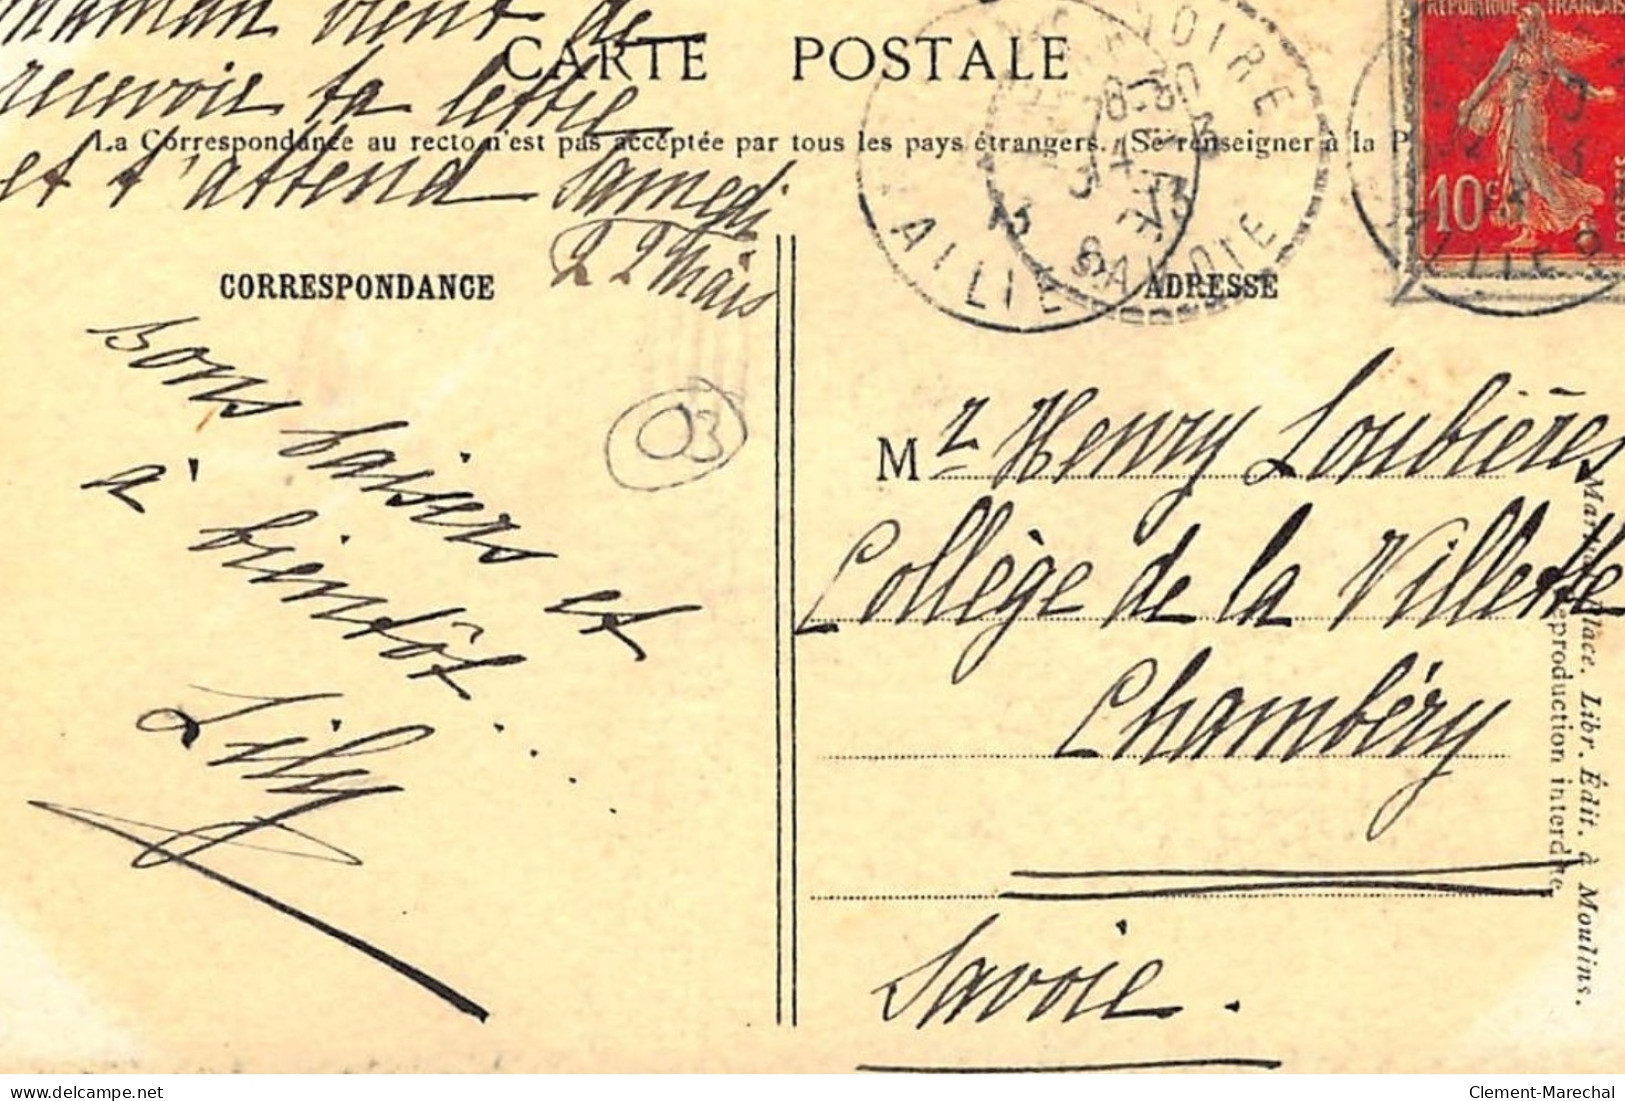 maman vient de
recevoir ta lettre
et t'attend samedi
22 Mars
CARTE POSTALE
La Correspondance au recto n'est pas acceptée par tous les pays étrangers. (Se renseigner à la P
CORRESPONDANCE
ADRESSE
Bons baisers et
à bientôt...
Lily
03
Mr Henry Loubières
Collège de la Villette
Chambéry
Savoie.
RÉPUBLIQUE FRANÇAISE
10c
POSTES
SAVOIE
place. Libr. Édit. à Moulins.
eproduction interdite
delcampe.net
Clement-Marechal